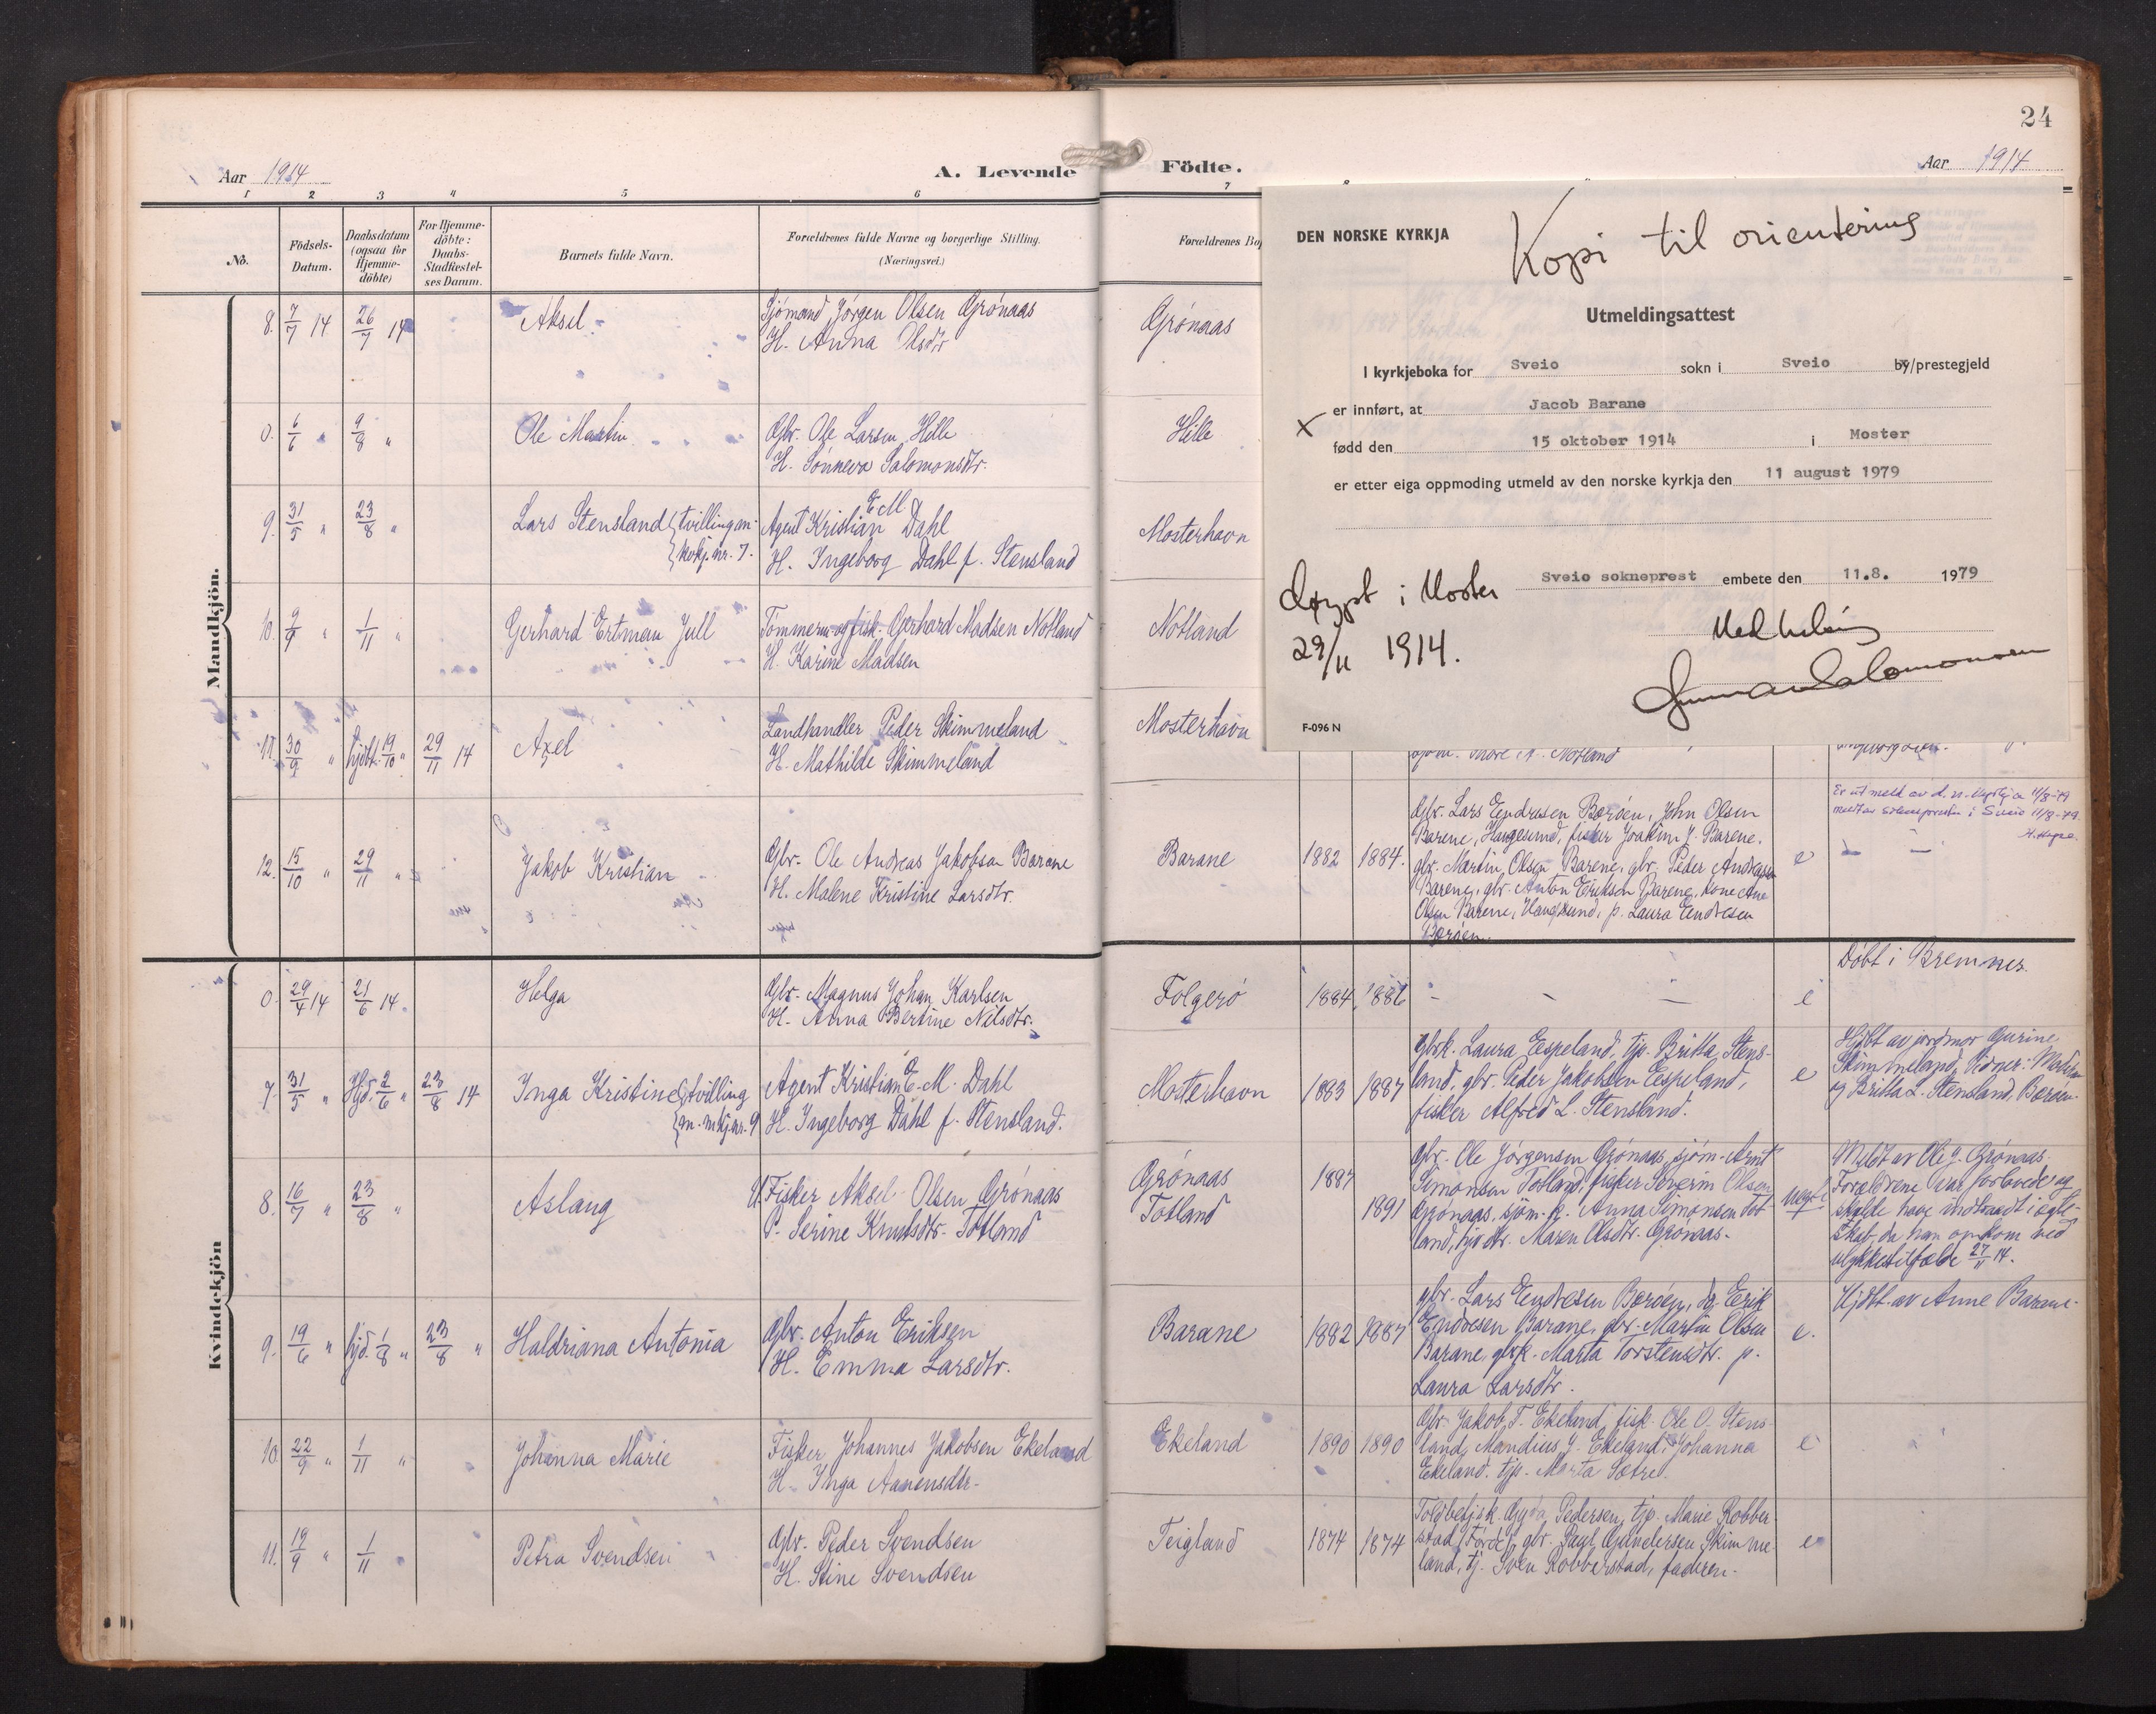 24
Aar 1914
A. Levende
Födte.
Aar 1914
1 2 3 4 5 6 7
No.
Födsels-
Datum.
Daabsdatum
(ogsaa for
Hjemme-
döbte)
For Hjemme-
döbte:
Daabs-
Stadfæstel-
ses Datum.
Barnets fulde Navn.
Forældrenes fulde Navne og borgerlige Stilling.
(Næringsvei.)
Forældrenes Bo
Mandkjön.
8. 7/7 14 26/7 14 Aksel Sjömand Jørgen Olsen Grønaas Grønaas
H. Anna Olsdtr
0. 6/6 " 9/8 " Ole Martin Gbr. Ole Larsen Hille Hille
H. Sønneva Salomonsdtr.
9. 31/5 " 23/8 " Lars Stensland {tvilling m. Agent Kristian E. M. Dahl Mosterhavn
{kvkj. nr. 7. H. Ingeborg Dahl f. Stensland
10. 9/9 " 1/11 " Gerhard Ertman Jull Tømmerm. og fisk. Gerhard Madsen Notland Notland
H. Karine Madsen
11. 30/9 " hjdbt. 19/10 " 29/11 14 Axel Landhandler Peder Skimmeland Mosterhavn
H. Mathilde Skimmeland
12. 15/10 " 29/11 " Jakob Kristian Gbr. Ole Andreas Jakobsen Barane Barane 1882 1884.
H. Malene Kristine Larsdtr.
Gbr. Lars Eendresen Børøen, John Olsen
Barene, Haugesund, fisker Joakim J. Barene,
gbr. Martin Olsen Barene, gbr. Peder Andreasen
Barene, gbr. Anton Eriksen Barene, kone Ane
Olsen Barene, Haugesund, p. Laura Eendresen
Børøen.
e
Er utmeld av d. n. kyrkja 11/8-79
meldt av soknepresten i Sveio 11/8-79.
DEN NORSKE KYRKJA
Kopi til orientering
Utmeldingsattest
I kyrkjeboka for Sveio sokn i Sveio by/prestegjeld
x er innført, at Jacob Barane
fødd den 15 oktober 1914 i Moster
er etter eiga oppmoding utmeld av den norske kyrkja den 11 august 1979
Sveio sokneprest embete den 11.8. 1979
Døypt i Moster
29/11 1914.
Med helsing
Gunnar Salomonsen
F-096 N
Kvindekjön
0. 29/4 14 21/6 14. Helga Gbr. Magnus Johan Karlsen Folgerø 1884 1886 e Döbt i Bremnes.
H. Anna Bertine Nilsdtr.
7. 31/5 " Hjd. 2/6 " 23/8 14 Inga Kristine {tvilling Agent Kristian E. M. Dahl Mosterhavn 1893 1887
{m. mkj nr. 9 H. Ingeborg Dahl f. Stensland.
Gbrk. Laura Eespeland, tjp. Britta Stens-
land, gbr. Peder Jakobsen Eespeland,
fisker Alfred L. Stensland.
e
Hjdbt av jordmor Gurine
Skimmeland. Vidner:
og Britta L. Stensland, Børøen.
8. 16/7 " 23/8 " Aslaug U. Fisker Aksel Olsen Grønaas Grønaas 1887
P. Serine Knutsdtr. Totland Totland 1891
Gbr. Ole Jørgensen Grønaas, sjöm. Arnt
Simonsen Totland, fisker Severin Olsen
Grønaas, sjöm. k. Anna Simonsen Tot-
land, tjv. dtr. Maren Olsdtr. Grønaas.
uegte
Meldt av Ole J. Grønaas.
Forældrene var forlovede og
skulde have indtraadt i egte-
skab, da han omkom ved
ulykkestilfælde 27/11 14.
9. 19/6 " hjd. 1/8 " 23/8 " Haldriana Antonia Gbr. Anton Eriksen Barane 1882 1887
H. Emma Larsdtr.
gbr. Lars Eendresen Børøen, do Eerik
Endresen Barane, gbr. Martin Olsen
Barane, gbrk. Marta Torstensdtr. p.
Laura Larsdtr.
e.
Hjdbt. av Anne Barane.
10. 22/9 " 1/11 " Johanna Marie Fisker Johannes Jakobsen Ekeland Ekeland 1890 1890
H. Inga Aanensdtr.
Gbr. Jakob T. Ekeland, fisk. Ole O. Stens-
land, Mandius J. Ekeland, Johanna
Ekeland, tjp. Marta Sætre.
e
11. 19/9 " 1/11 Petra Svendsen Gbr. Peder Svendsen Teigland 1874 1874
H. Stine Svendsen
Toldbetjsk. Gyda Pedersen, tjp. Marie Robber-
stad (Førde), gbr. Paul Gundersen Skimme-
land, tj. Sven Robberstad, faderen.
e